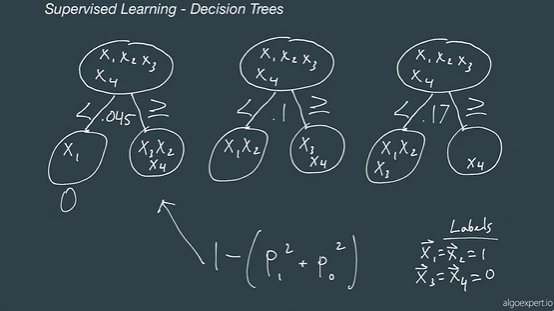 Supervised Learning - Decision Trees
X₁ X₂ X₃
X₄
X₁ X₂ X₃
X₄
X₁ X₂ X₃
X₄
< .045 ≥
< .1 ≥
< .17 ≥
X₁
X₃ X₂
X₄
X₁ X₂
X₃
X₄
X₁ X₂
X₃
X₄
0
1 - (P₁² + P₀²)
Labels
X⃗₁ = X⃗₂ = 1
X⃗₃ = X⃗₄ = 0
algoexpert.io